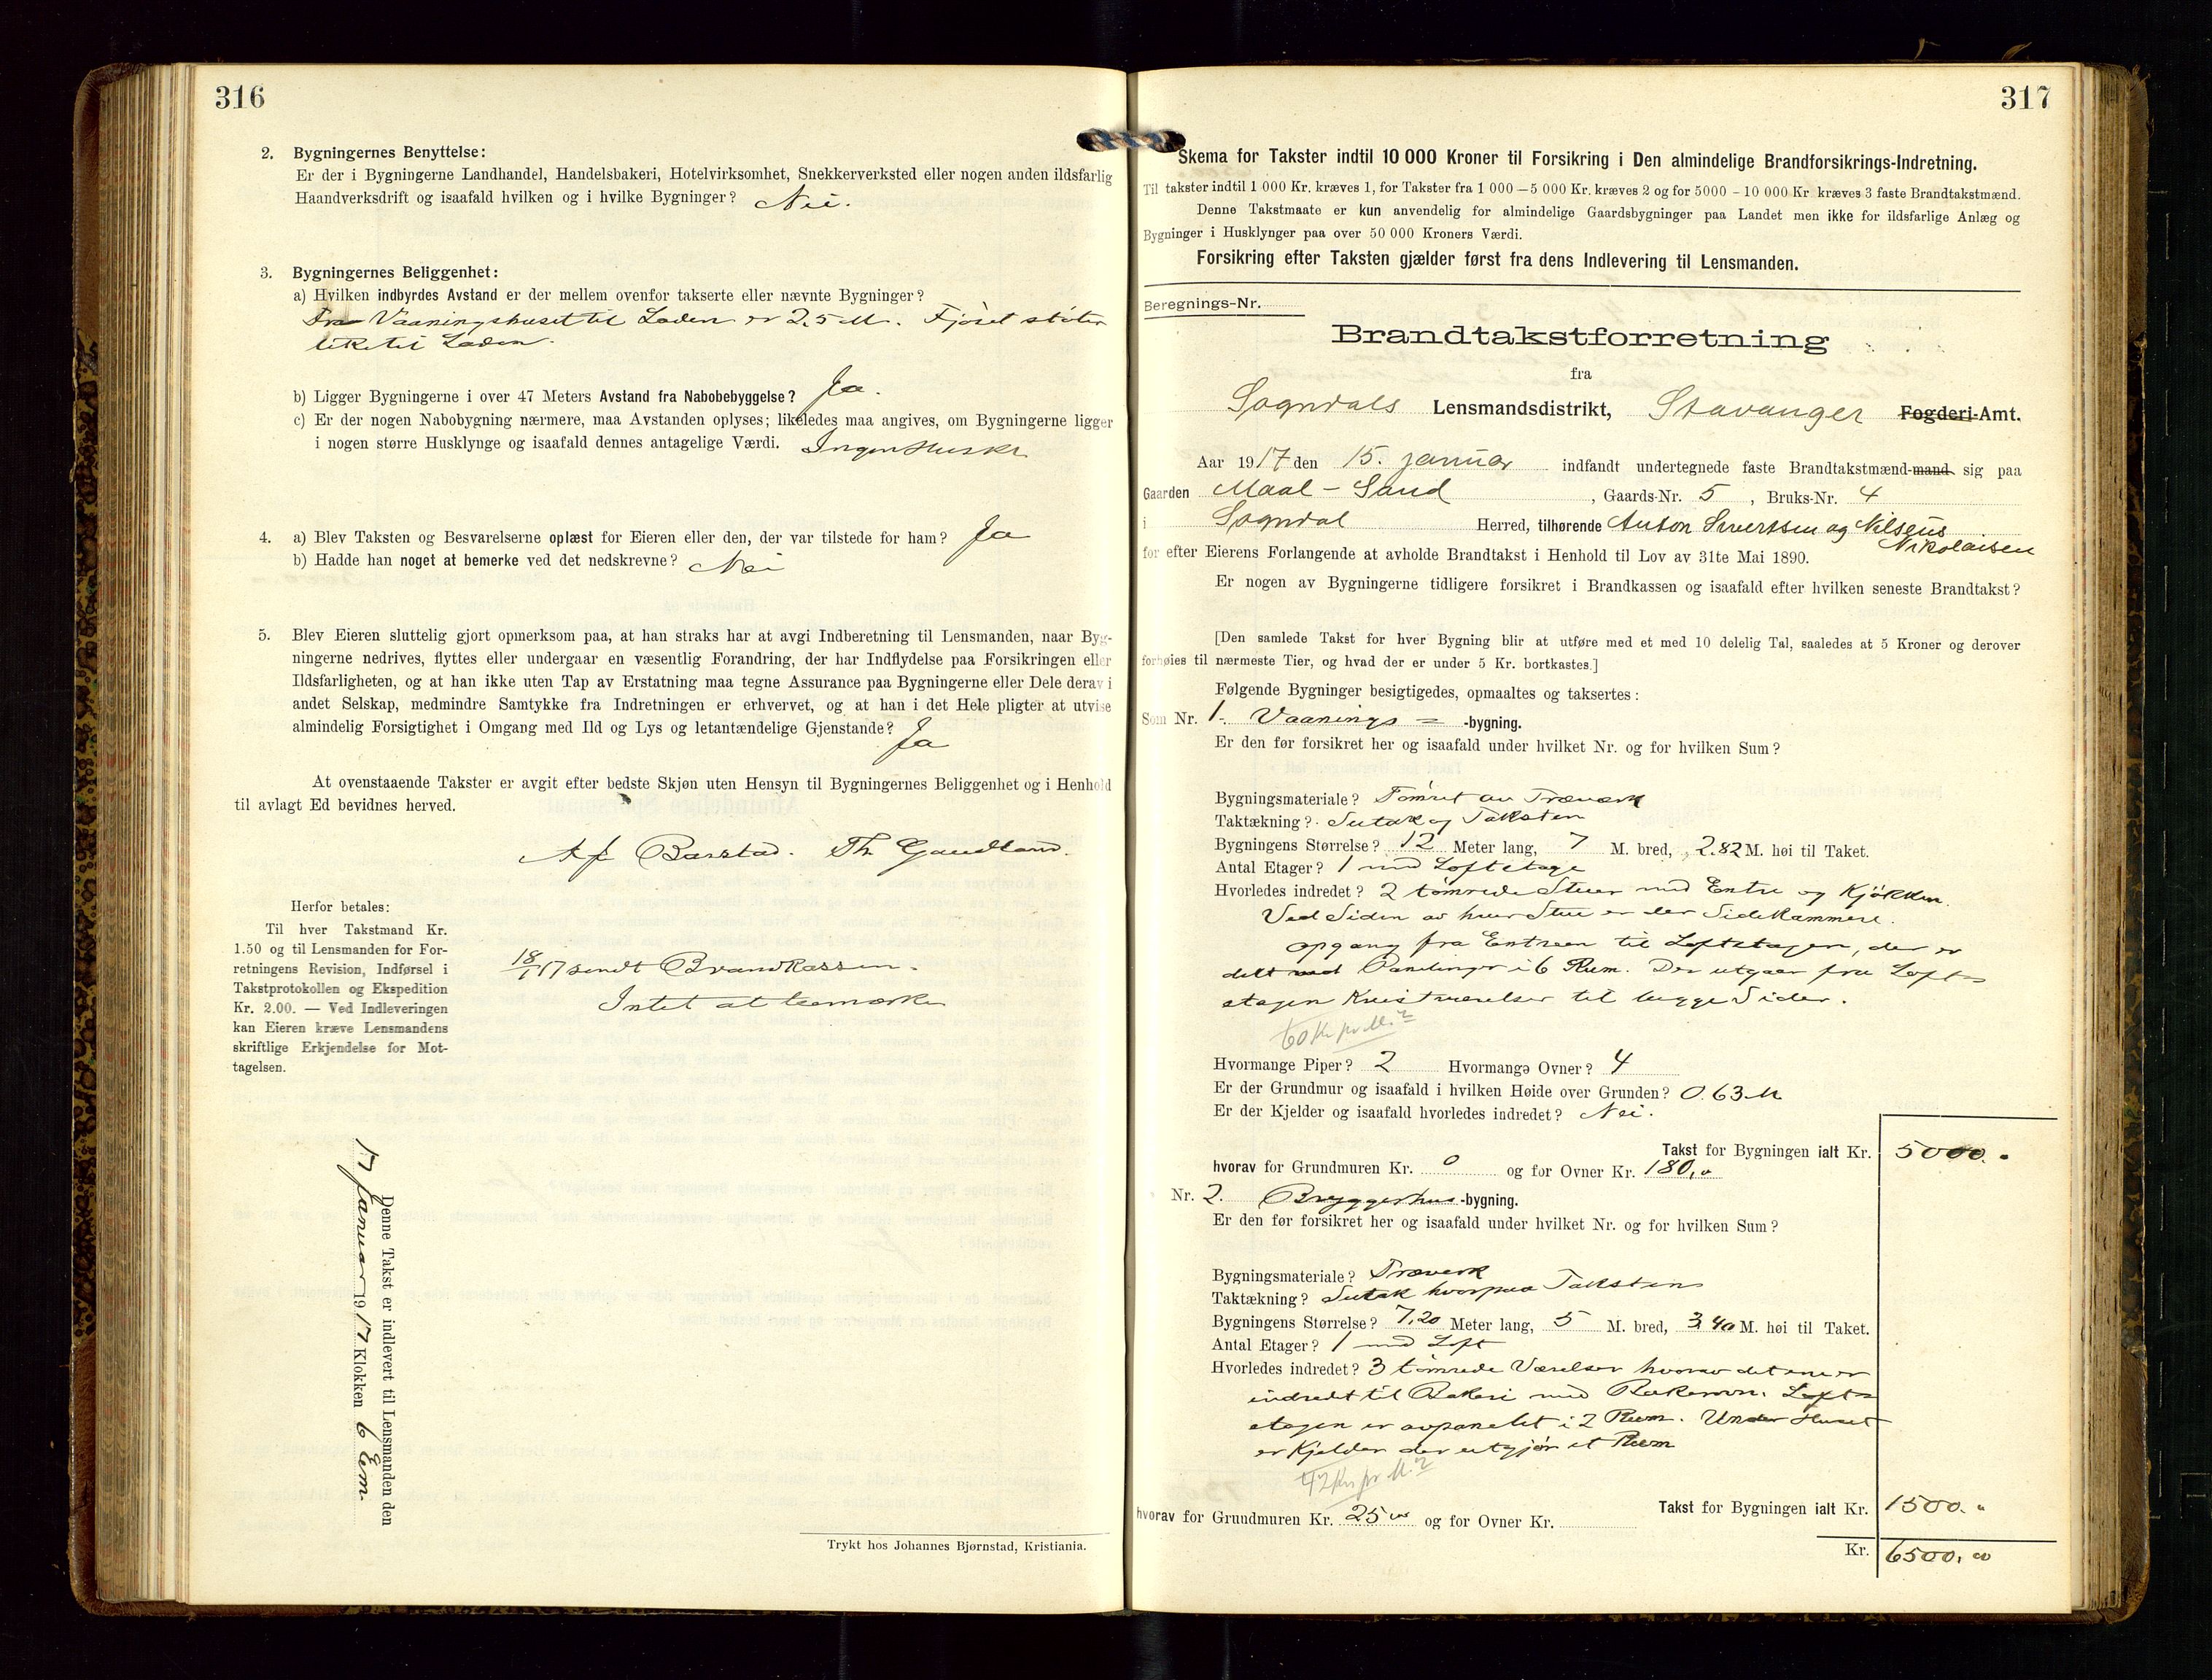 316
2. Bygningernes Benyttelse:
Er der i Bygningerne Landhandel, Handelsbakeri, Hotelvirksomhet, Snekkerverksted eller nogen anden ildsfarlig
Haandverksdrift og isaafald hvilken og i hvilke Bygninger? Nei.
3. Bygningernes Beliggenhet:
a) Hvilken indbyrdes Avstand er der mellem ovenfor takserte eller nævnte Bygninger?
Fra Vaaningshuset til Laden er 2,5 M. Fjöset stöter
like til Laden.
b) Ligger Bygningerne i over 47 Meters Avstand fra Nabobebyggelse? Ja.
c) Er der nogen Nabobygning nærmere, maa Avstanden oplyses; likeledes maa angives, om Bygningerne ligger
i nogen større Husklynge og isaafald dennes antagelige Værdi. Ingen
4. a) Blev Taksten og Besvarelserne oplæst for Eieren eller den, der var tilstede for ham? Ja
b) Hadde han noget at bemerke ved det nedskrevne? Nei
5. Blev Eieren sluttelig gjort opmerksom paa, at han straks har at avgi Indberetning til Lensmanden, naar Byg-
ningerne nedrives, flyttes eller undergaar en væsentlig Forandring, der har Indflydelse paa Forsikringen eller
Ildsfarligheten, og at han ikke uten Tap av Erstatning maa tegne Assurance paa Bygningerne eller Dele derav i
andet Selskap, medmindre Samtykke fra Indretningen er erhvervet, og at han i det Hele pligter at utvise
almindelig Forsigtighet i Omgang med Ild og Lys og letantændelige Gjenstande? Ja
At ovenstaaende Takster er avgit efter bedste Skjøn uten Hensyn til Bygningernes Beliggenhet og i Henhold
til avlagt Ed bevidnes herved.
Barstad. Th. Gaudland.
Herfor betales:
Til hver Takstmand Kr.
1.50 og til Lensmanden for For-
retningens Revision, Indførsel i
Takstprotokollen og Ekspedition
Kr. 2.00. — Ved Indleveringen
kan Eieren kræve Lensmandens
skriftlige Erkjendelse for Mot-
tagelsen.
18/1 17 sendt Brandkassen.
Intet at bemærke
Denne Takst er indlevert til Lensmanden den
17 Januar 1917 Klokken 6 Em.
Trykt hos Johannes Bjørnstad, Kristiania.
317
Skema for Takster indtil 10 000 Kroner til Forsikring i Den almindelige Brandforsikrings-Indretning.
Til takster indtil 1 000 Kr. kræves 1, for Takster fra 1 000 — 5 000 Kr. kræves 2 og for 5000 - 10 000 Kr. kræves 3 faste Brandtakstmænd.
Denne Takstmaate er kun anvendelig for almindelige Gaardsbygninger paa Landet men ikke for ildsfarlige Anlæg og
Bygninger i Husklynger paa over 50 000 Kroners Værdi.
Forsikring efter Taksten gjælder først fra dens Indlevering til Lensmanden.
Beregnings-Nr.
Brandtakstforretning
fra
Sogndals Lensmandsdistrikt, Stavanger Fogderi-Amt.
Aar 1917 den 15. januar indfandt undertegnede faste Brandtakstmænd-mand sig paa
Gaarden Maal - Sand, Gaards-Nr. 5, Bruks-Nr. 4
i Sogndal Herred, tilhørende Anton Sivertsen og Nilseus
Nikolaisen
for efter Eierens Forlangende at avholde Brandtakst i Henhold til Lov av 31te Mai 1890.
Er nogen av Bygningerne tidligere forsikret i Brandkassen og isaafald efter hvilken seneste Brandtakst?
[Den samlede Takst for hver Bygning blir at utføre med et med 10 delelig Tal, saaledes at 5 Kroner og derover
forhøies til nærmeste Tier, og hvad der er under 5 Kr. bortkastes.]
Følgende Bygninger besigtigedes, opmaaltes og taksertes:
Som Nr. 1. Vaanings = -bygning.
Er den før forsikret her og isaafald under hvilket Nr. og for hvilken Sum?
Bygningsmateriale? Tömret av Træverk
Taktækning? Sutak og Taksten
Bygningens Størrelse? 12 Meter lang, 7 M. bred, 2.82 M. høi til Taket.
Antal Etager? 1 med Loftetage
Hvorledes indredet? 2 tömrede Stuer med Entre og Kjökken.
Ved Siden av hver Stue er der Sidekammere.
opgang fra Entreen til Loftetagen, der er
delt med Panelinger i 6 Rum. Der utgaar fra Loft=
etagen Kvistværelser til begge Sider.
60 Kr pr M.²
Hvormange Piper? 2 Hvormange Ovner? 4
Er der Grundmur og isaafald i hvilken Høide over Grunden? 0.63 M
Er der Kjelder og isaafald hvorledes indredet? Nei.
Takst for Bygningen ialt Kr. 5000.
hvorav for Grundmuren Kr. 0 og for Ovner Kr. 180,
Nr. 2. Bryggerhus-bygning.
Er den før forsikret her og isaafald under hvilket Nr. og for hvilken Sum?
Bygningsmateriale? Træverk
Taktækning? Sutak hvorpaa Taksten
Bygningens Størrelse? 7,20 Meter lang, 5 M. bred, 3,40 M. høi til Taket.
Antal Etager? 1 med Loft
Hvorledes indredet? 3 tömrede Værelser hvorav det ene er
indredt til Bakeri med Bakerovn. Loft=
etagen er avpanelet i 2 Rum. Under Huset
er Kjelder der utgjör et Rum
42 Kr pr M.²
Takst for Bygningen ialt Kr. 1500.
hvorav for Grundmuren Kr. 25 og for Ovner Kr.
Kr. 6500,00